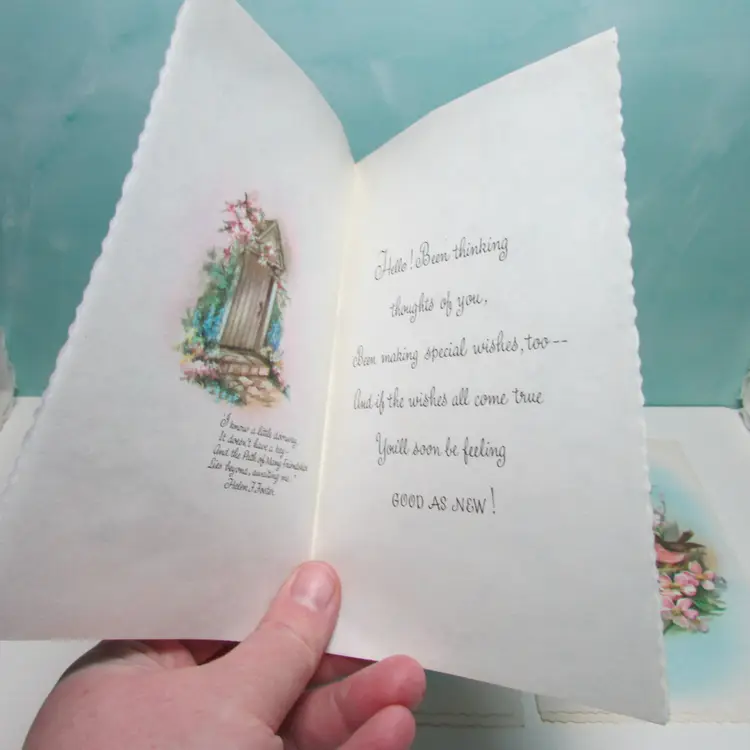 I know a little doorway
It doesn't have a key-
And the Path of Many Friendships
Lies beyond, awaiting me."
Helen F. Foster
Hello! Been thinking
thoughts of you,
Been making special wishes, too--
And if the wishes all come true
You'll soon be feeling
GOOD AS NEW!